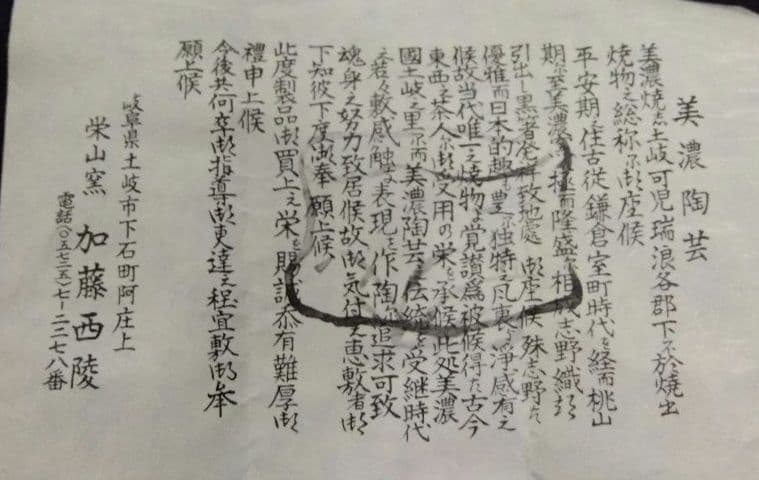 美濃陶芸
美濃焼志土岐可児瑞浪各郡下ニ於焼出
焼物之総称ニ御座候
平安期之往古従鎌倉室町時代を経而桃山
期ニ至美濃 極而隆盛ニ相成志野織部
引出し黒者発祥致地處ニ御座候 殊志野ハ
優雅而日本的趣も豊ニ独特之風衷ハ浄感有之
候故当代唯一之焼物と覚讃為被候得た古今
東西之茶人ニ御愛用の栄を承候 此処美濃
國土岐之里ニ而美濃陶芸之伝統を受継時代
之若々敷感触之表現を作陶ニ追求可致
魂身之努力致居候故御気付之恵敷者御
下知彼下度御奉願上候
此度製品御買上之栄を賜誠忝有難厚御
禮申上候
今後共何卒御指導御更達之程宜敷御奉
願上候
岐阜県土岐市下石町阿庄上
栄山窯 加藤西陵
電話(〇五七二五)七-二二七八番